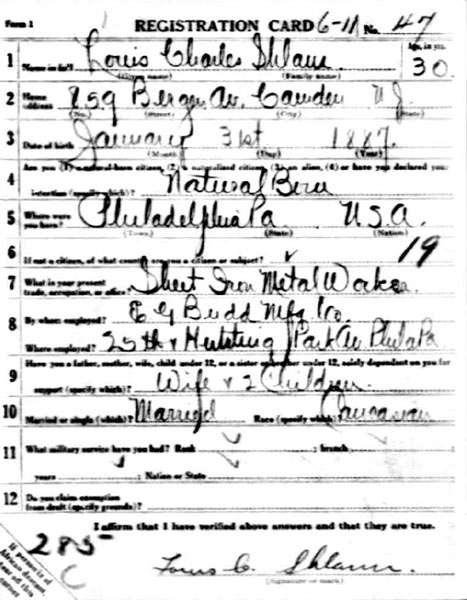 Form 1 REGISTRATION CARD 6-11 No. 47
1 Louis Charles Shlann Age, in yrs. 30
Name in full (Given name) (Family name)
2 Home address 859 Bergen Av. Camden N.J.
(No.) (Street) (City) (State)
3 Date of birth January 31st 1887
(Month) (Day) (Year)
Are you (1) a natural-born citizen, (2) a naturalized citizen, (3) an alien, (4) or have you declared your
4 intention (specify which)? Natural Born
5 Where were you born? Philadelphia Pa U.S.A.
(Town) (State) (Nation)
19
6 If not a citizen, of what country are you a citizen or subject?
7 What is your present trade, occupation, or office? Sheet Iron Metal Worker
8 By whom employed? E G Budd Mfg Co.
Where employed? 25th & Hunting Park Av Phila Pa
9 Have you a father, mother, wife, child under 12, or a sister or brother under 12, solely dependent on you for
support (specify which)? Wife & 2 Children
10 Married or single (which)? Married Race (specify which)? Caucasian
11 What military service have you had? Rank ; branch
years ; Nation or State
12 Do you claim exemption from draft (specify grounds)?
I affirm that I have verified above answers and that they are true.
285
C
Louis C. Shlann
(Signature or mark)
If person is of African descent, tear off this corner